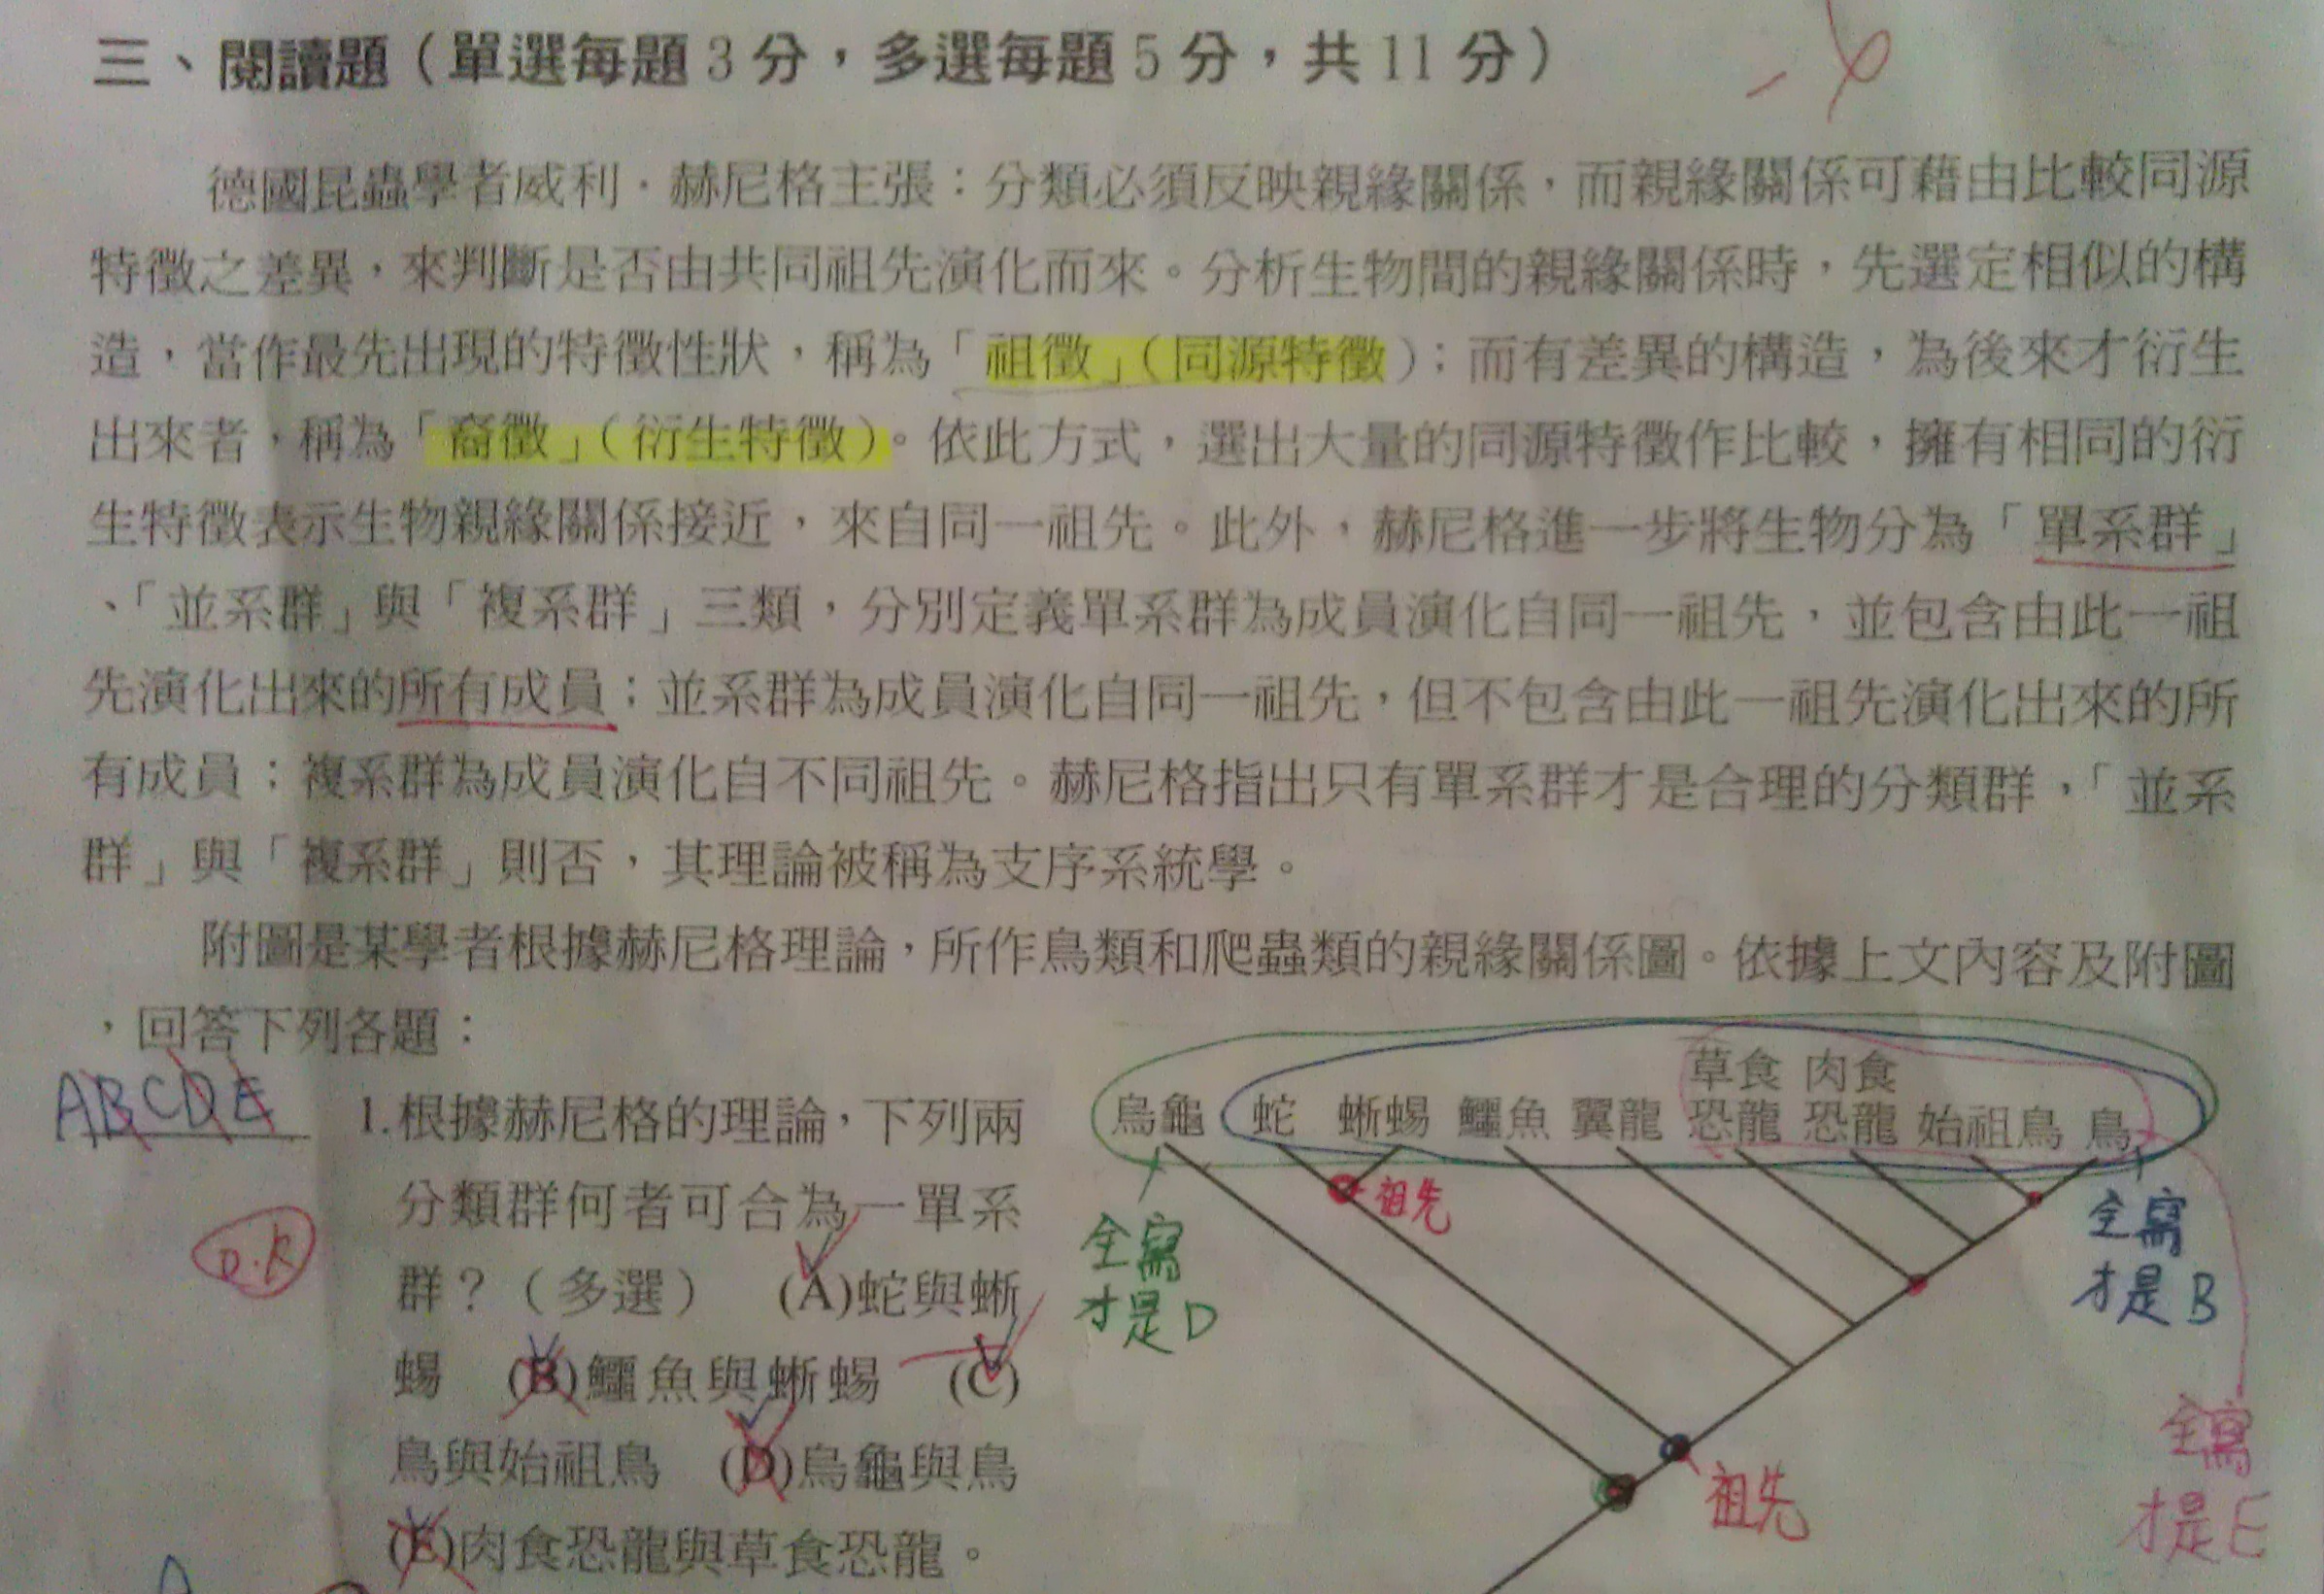 三、閱讀題（單選每題3分，多選每題5分，共11分）
德國昆蟲學者威利．赫尼格主張：分類必須反映親緣關係，而親緣關係可藉由比較同源
特徵之差異，來判斷是否由共同祖先演化而來。分析生物間的親緣關係時，先選定相似的構
造，當作最先出現的特徵性狀，稱為「祖徵」（同源特徵）；而有差異的構造，為後來才衍生
出來者，稱為「裔徵」（衍生特徵）。依此方式，選出大量的同源特徵作比較，擁有相同的衍
生特徵表示生物親緣關係接近，來自同一祖先。此外，赫尼格進一步將生物分為「單系群」
、「並系群」與「複系群」三類，分別定義單系群為成員演化自同一祖先，並包含由此一祖
先演化出來的所有成員；並系群為成員演化自同一祖先，但不包含由此一祖先演化出來的所
有成員；複系群為成員演化自不同祖先。赫尼格指出只有單系群才是合理的分類群，「並系
群」與「複系群」則否，其理論被稱為支序系統學。
附圖是某學者根據赫尼格理論，所作鳥類和爬蟲類的親緣關係圖。依據上文內容及附圖
，回答下列各題：
ABCDE
1.根據赫尼格的理論，下列兩
分類群何者可合為一單系
群？（多選） (A)蛇與蜥
蜴 (B)鱷魚與蜥蜴 (C)
鳥與始祖鳥 (D)烏龜與鳥
(E)肉食恐龍與草食恐龍。
草食 肉食
烏龜 蛇 蜥蜴 鱷魚 翼龍 恐龍 恐龍 始祖鳥 鳥
祖先
全寫
才是D
全寫
才是B
祖先
全寫
才是E